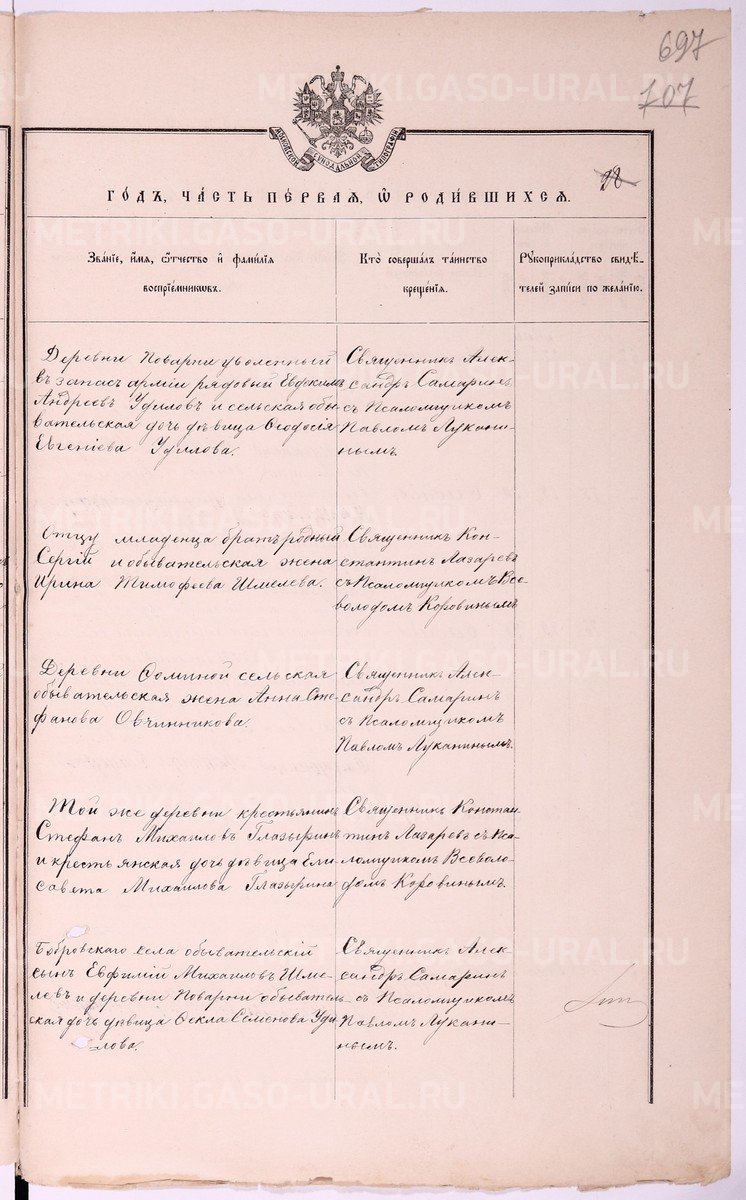 697
107
МОСКОВСКОЙ СѴНОДАЛЬНОЙ ТИПОГРАФІИ
28
ГО́ДЪ, ЧА́СТЬ ПЕ́РВАЯ, Ѽ РОДИ́ВШИХСЯ.
Зва́ніе, и́мя, ѻ҆́тчество и҆ фами́лїя
воспрїе́мниковъ.
Кто̀ соверша́лъ та́инство
креще́нїя.
Рꙋкоприкла́дство свидѣ́-
телей за́писи по жела́нїю.
Деревни Поварни уволенный
въ запасъ арміи рядовый Евдокимъ
Андреевъ Удиловъ и сельская обы-
вательская дочь дѣвица Ѳеодосія
Евгеніева Удилова.
Священникъ Алек-
сандръ Самаринъ
съ Псаломщикомъ
Павломъ Лукани-
нымъ.
Отцу младенца братъ родный
Сергій и обывательская жена
Ирина Тимофеева Шмелева.
Священникъ Кон-
стантинъ Лазаревъ
съ Псаломщикомъ Все-
володомъ Коровинымъ
Деревни Ѳоминой сельская
обывательская жена Анна Сте-
фанова Овчинникова.
Священникъ Алек-
сандръ Самаринъ
съ Псаломщикомъ
Павломъ Луканинымъ.
Той же деревни крестьянинъ
Стефанъ Михаиловъ Глазыринъ
и крестьянская дочь дѣвица Ели-
савета Михаилова Глазырина
Священникъ Констан-
тинъ Лазаревъ съ Пса-
ломщикомъ Всеволо-
домъ Коровинымъ.
Бобровскаго села обывательскій
сынъ Евфимій Михаиловъ Шме-
левъ и деревни Поварни обыватель-
ская дочь дѣвица Ѳекла Семенова Уди-
лова.
Священникъ Алек-
сандръ Самаринъ
съ Псаломщикомъ
Павломъ Лукани-
нымъ.
METRIKI.GASO-URAL.RU